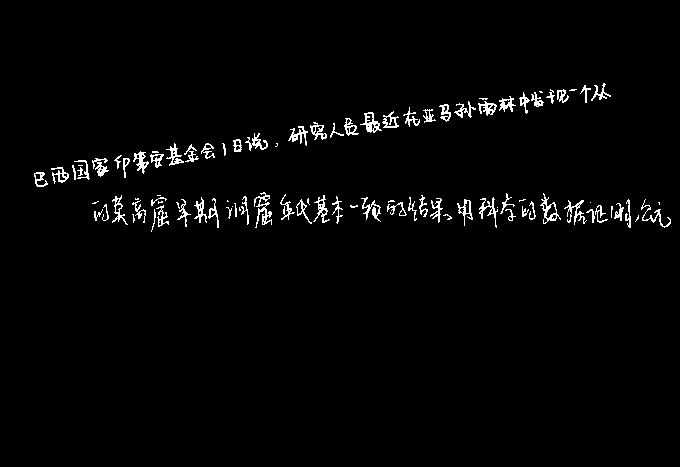 巴西国家印第安基金会1日说，研究人员最近在亚马孙雨林中发现一个从
的莫高窟早期洞窟年代基本一致的结果，用科学的数据证明，公元